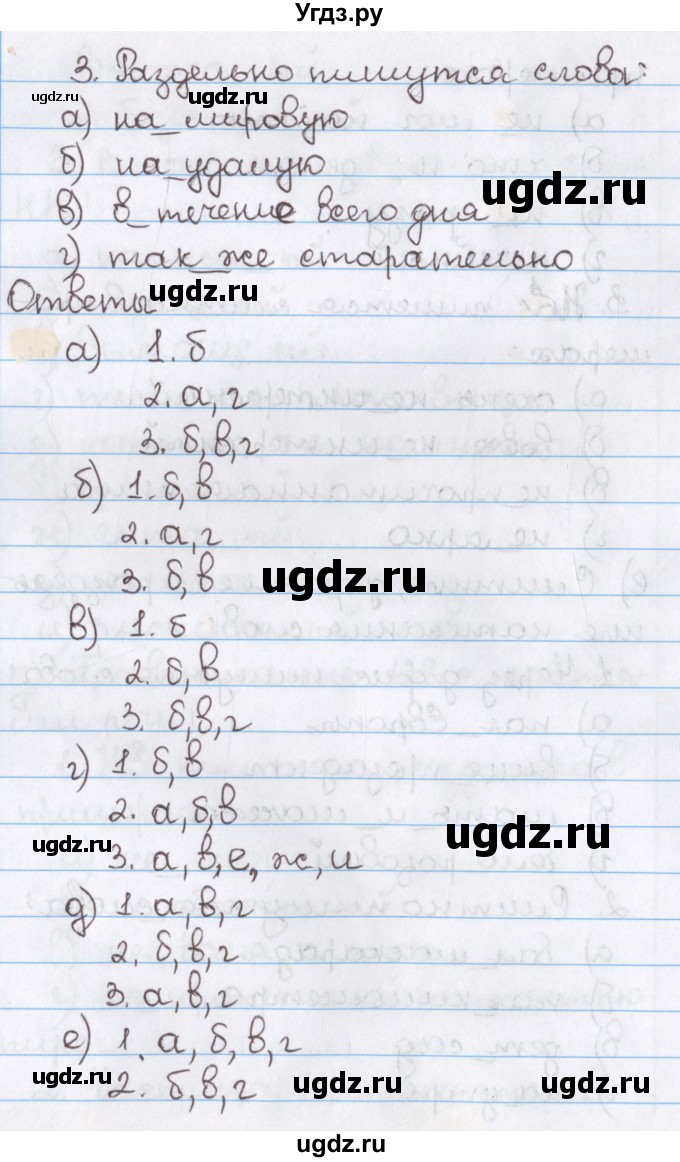 Угдз.ру
3. Раздельно пишутся слова:
ugdz.ru
ugdz.ru
а) на_мировую
б) на_удалую
ugdz.ru
в) в_течение всего дня
г) так_же старательно
ugdz.ru
Ответы
а) 1. б
2. а, г
3. б, в, г
б) 1. б, в
2. а, г
3. б, в
ugdz.ru
в) 1. б
2. б, в
3. б, в, г
г) 1. б, в
2. а, б, в
ugdz.ru
ugdz.ru
3. а, в, е, ж, и
д) 1. а, в, г
2. б, в, г
3. а, в, г
е) 1. а, б, в, г
2. б, в, г
ugdz.ru
ugdz.ru
ugdz.ru
ugdz.ru